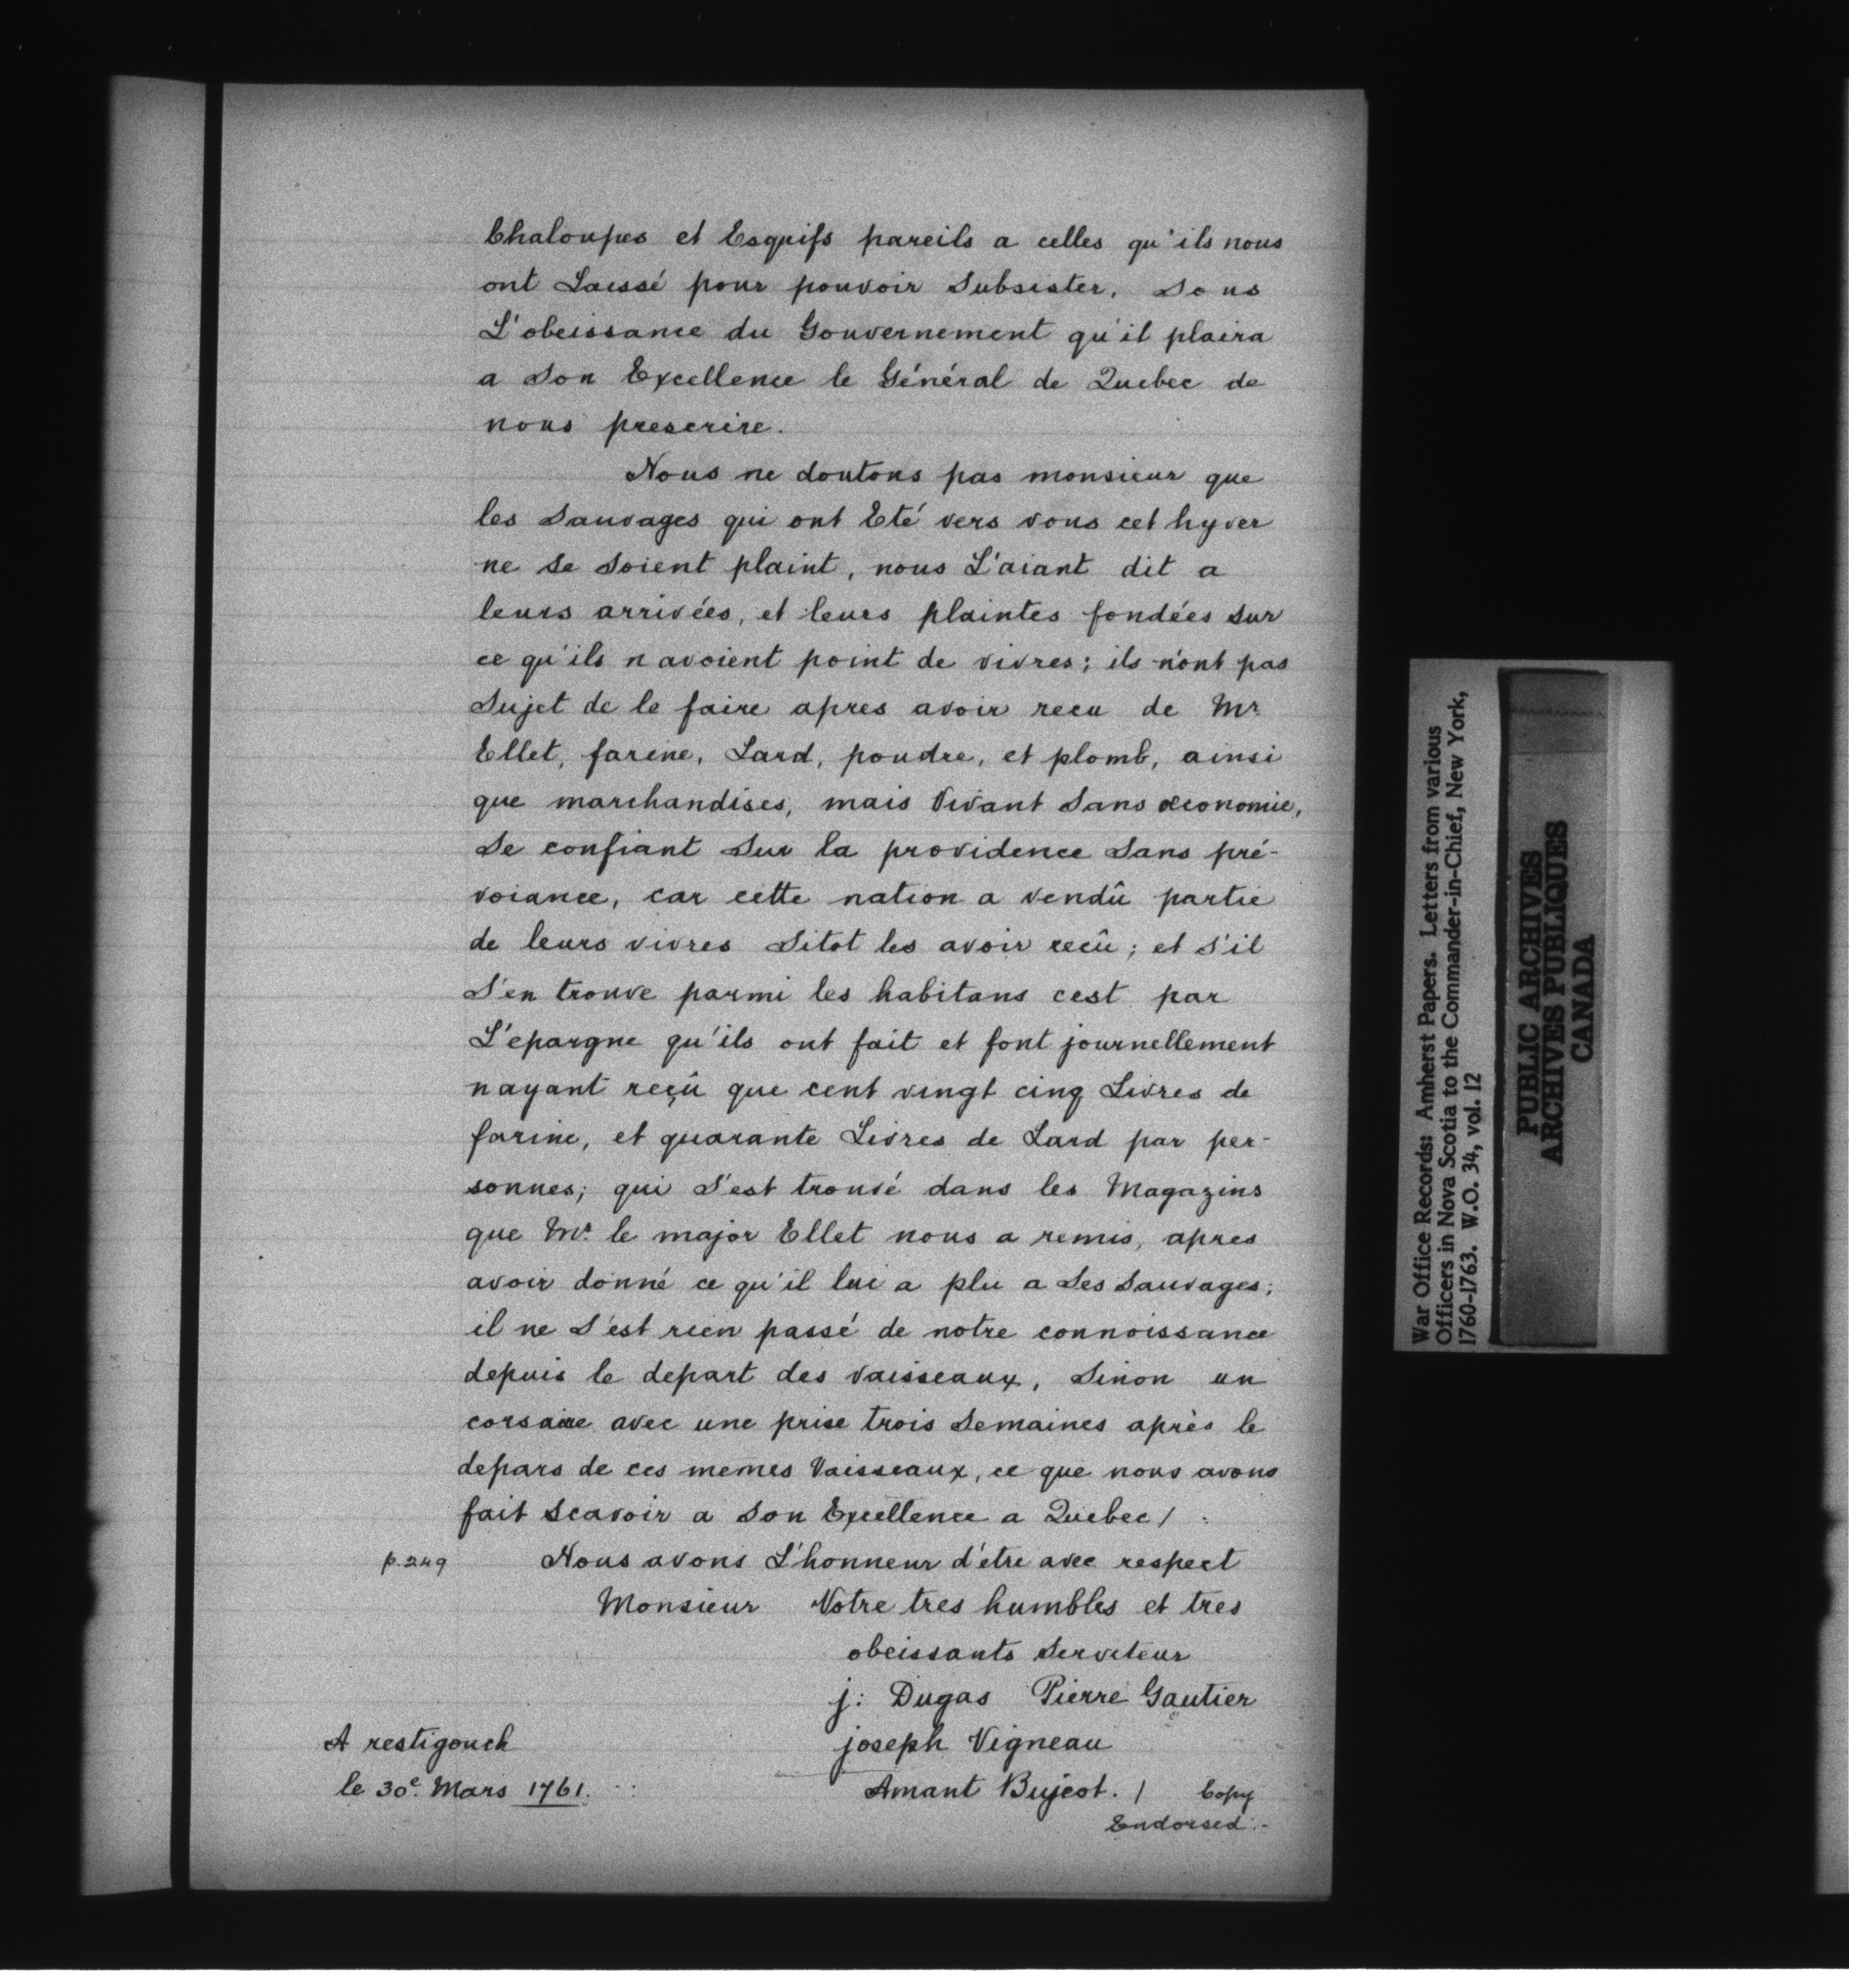 Chaloupes et Esquifs pareils a celles qu'ils nous
ont Laissé pour pouvoir Subsister, Sous
L'obeissance du Gouvernement qu'il plaira
a Son Excellence le Général de Quebec de
nous prescrire.
Nous ne doutons pas monsieur que
les Sauvages qui ont Eté vers vous cet hyver
ne se Soient plaint, nous L'aiant dit a
leurs arrivées, et leurs plaintes fondées sur
ce qu'ils n avoient point de vivres; ils n'ont pas
Sujet de le faire apres avoir recu de Mr
Ellet, farine, Lard, poudre, et plomb, ainsi
que marchandises, mais Vivant Sans œconomie,
Se confiant Sur la providence Sans pré-
voiance, car cette nation a vendû partie
de leurs vivres Sitot les avoir recû; et S'il
S'en trouve parmi les habitans cest par
L'epargne qu'ils ont fait et font journellement
nayant reçû que cent vingt cinq Livres de
farine, et quarante Livres de Lard par per-
sonnes; qui S'est trouvé dans les Magazins
que Mr. le major Ellet nous a remis, apres
avoir donné ce qu'il lui a plu a Ses Sauvages;
il ne S'est rien passé de notre connoissance
depuis le depart des vaisseaux, Sinon un
corsaire avec une prise trois Semaines après le
depars de ces memes Vaisseaux, ce que nous avons
fait Scavoir a Son Excellence a Quebec /.
p. 249 Nous avons L'honneur d'etre avec respect
Monsieur Votre tres humbles et tres
obeissants Serviteur
j: Dugas Pierre Gautier
A restigouch joseph Vigneau
le 30e. Mars 1761. Amant Bujeot. / Copy
Endorsed:-
War Office Records: Amherst Papers. Letters from various
Officers in Nova Scotia to the Commander-in-Chief, New York,
1760-1763. W.O. 34, vol. 12
PUBLIC ARCHIVES
ARCHIVES PUBLIQUES
CANADA